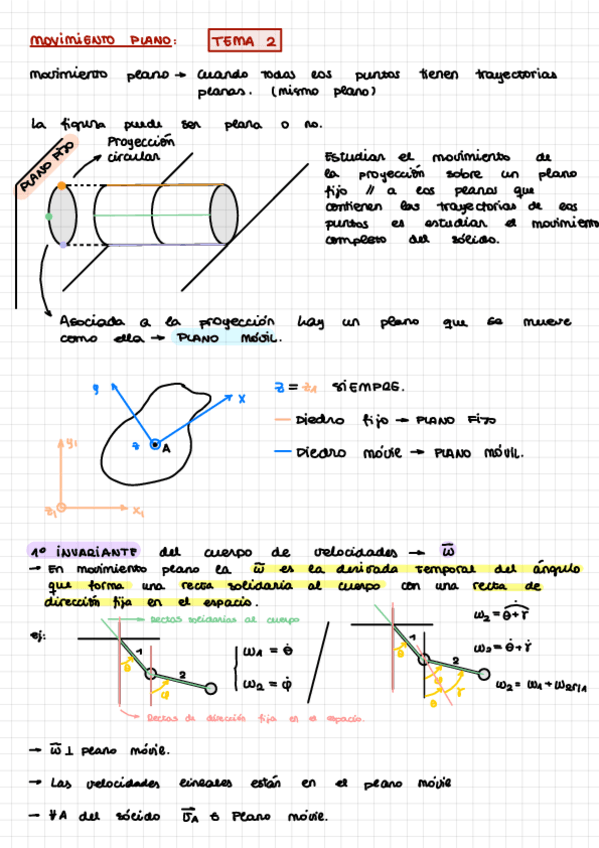 MOVIMIENTO PLANO: TEMA 2
movimiento plano → Cuando todos los puntos tienen trayectorias
planas. (mismo plano)
La figura puede ser plana o no.
PLANO FIJO
Proyección
circular
Estudiar el movimiento de
la proyección sobre un plano
fijo // a los planos que
contienen las trayectorias de los
puntos es estudiar el movimiento
completo del sólido.
Asociada a la proyección hay un plano que se mueve
como ella → PLANO MÓVIL.
y
x
z
A
y1
z1
x1
z = z1 SIEMPRE.
Diedro fijo → PLANO FIJO
Diedro móvil → PLANO MÓVIL.
1º INVARIANTE del cuerpo de velocidades → ω̄
→ En movimiento plano la ω̄ es la derivada temporal del ángulo
que forma una recta solidaria al cuerpo con una recta de
dirección fija en el espacio.
ej:
Rectas solidarias al cuerpo
1
θ
2
φ
ω1 = θ̇
ω2 = φ̇
Rectas de dirección fija en el espacio.
1
θ
2
φ
γ
θ
ω2 = θ+γ
ω2 = θ̇+γ̇
ω2 = ω1 + ω2r/1
→ ω̄ ⊥ plano móvil.
→ Las velocidades lineales están en el plano móvil
→ ∀A del sólido v̄A Plano móvil.